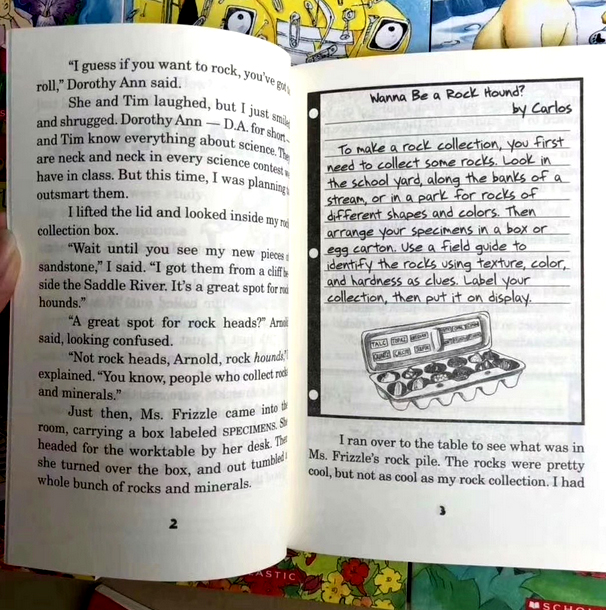 "I guess if you want to rock, you've got
roll," Dorothy Ann said.
She and Tim laughed, but I just smiled
and shrugged. Dorothy Ann — D.A. for short —
and Tim know everything about science. They
are neck and neck in every science contest we
have in class. But this time, I was planning to
outsmart them.
I lifted the lid and looked inside my rock
collection box.
"Wait until you see my new pieces of
sandstone," I said. "I got them from a cliff be
side the Saddle River. It's a great spot for rock
hounds."
"A great spot for rock heads?" Arnold
said, looking confused.
"Not rock heads, Arnold, rock hounds," I
explained. "You know, people who collect rocks
and minerals."
Just then, Ms. Frizzle came into the
room, carrying a box labeled SPECIMENS. She
headed for the worktable by her desk. Then
she turned over the box, and out tumbled a
whole bunch of rocks and minerals.
2
Wanna Be a Rock Hound?
by Carlos
To make a rock collection, you first
need to collect some rocks. Look in
the school yard, along the banks of a
stream, or in a park for rocks of
different shapes and colors. Then
arrange your specimens in a box or
egg carton. Use a field guide to
identify the rocks using texture, color,
and hardness as clues. Label your
collection, then put it on display.
TALC
I ran over to the table to see what was in
Ms. Frizzle's rock pile. The rocks were pretty
cool, but not as cool as my rock collection. I had
3